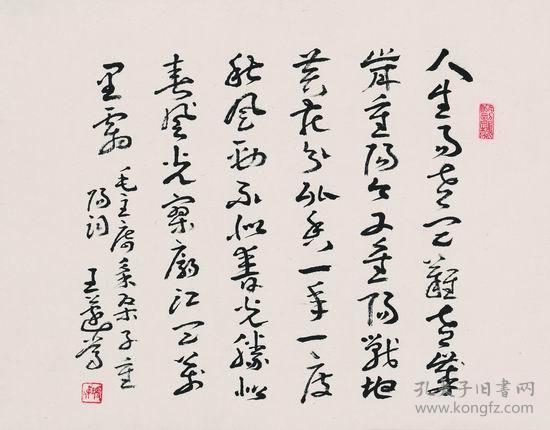 人生易老天難老歲
歲重陽今又重陽戰地
黄花分外香一年一度
秋風勁不似春光勝似
春風光寥廓江天萬
里霜 毛主席采桑子重
陽詞 王遐舉
孔夫子旧书网
www.kongfz.com